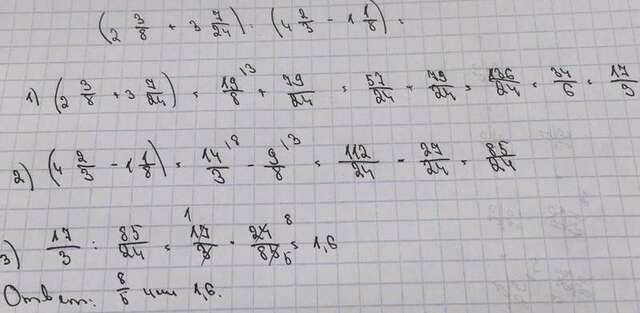 (2 3/8 + 3 7/24) : (4 2/3 - 1 1/8) =
1) (2 3/8 + 3 7/24) = 19/8 ^3 + 79/24 = 57/24 + 79/24 = 136/24 = 34/6 = 17/3
2) (4 2/3 - 1 1/8) = 14/3 ^8 - 9/8 ^3 = 112/24 - 29/24 = 85/24
3) 17/3 : 85/24 = 17/3 · 24/85 = 1,6
Ответ: 8/5 или 1,6.